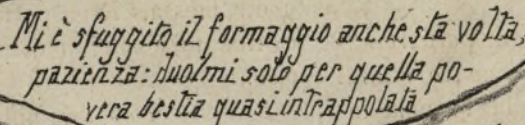 Mi è sfuggito il formaggio anche sta volta,
pazienza: duolmi solo per quella po-
vera bestia quasi intrappolata